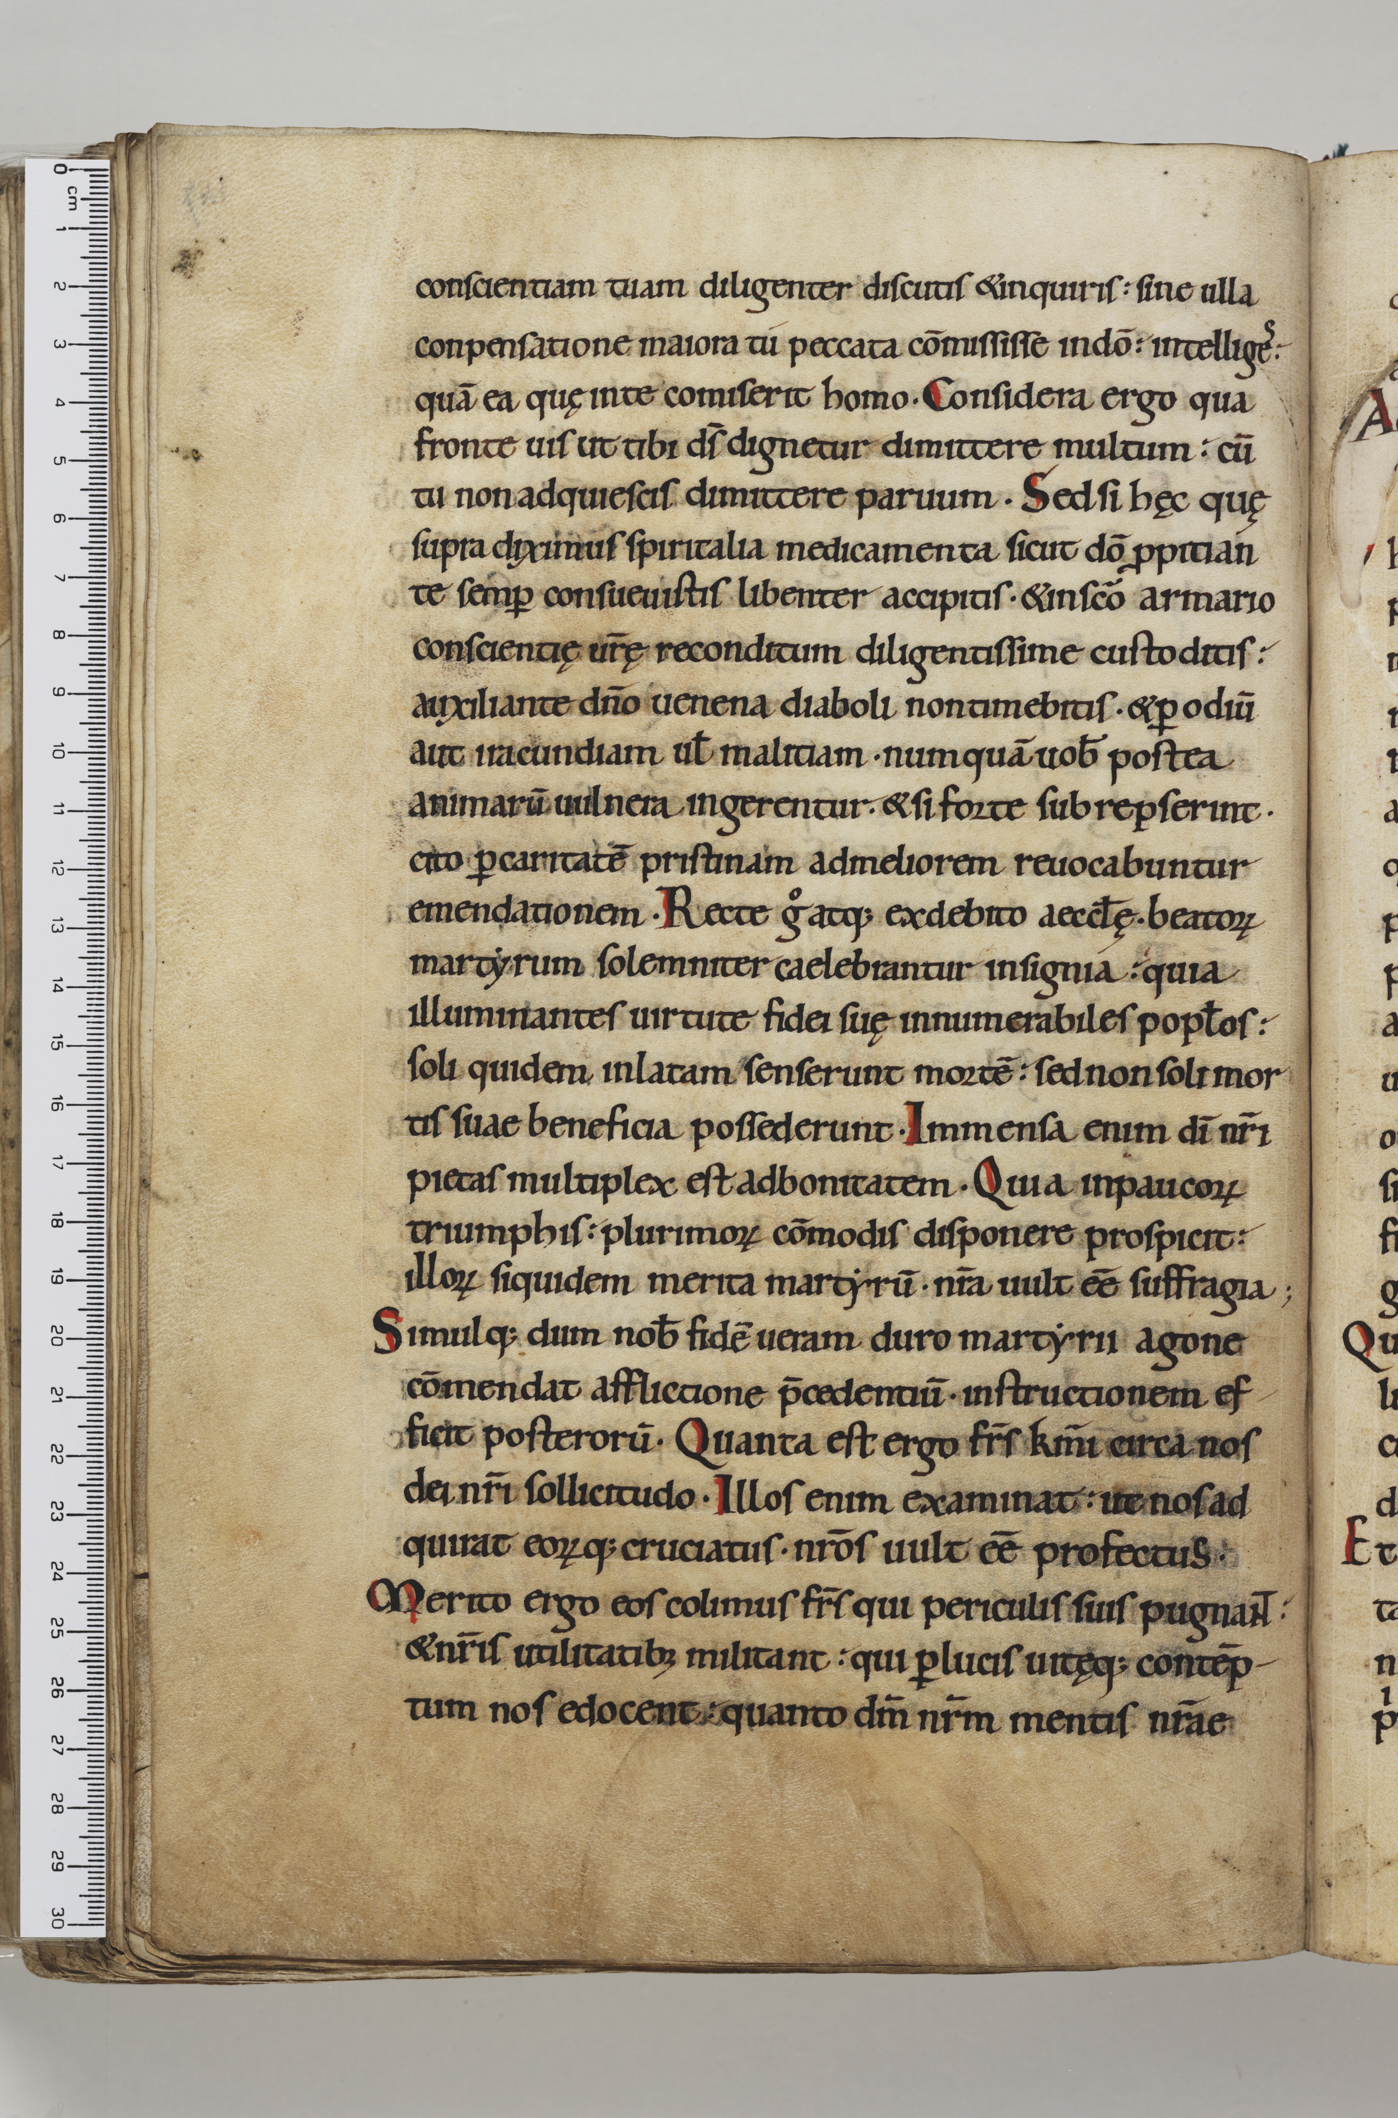 conscientiam tuam diligenter discutis &inquiris: sine ulla
conpensatione maiora tú peccata cōmississe indō: intelligęs:
quā ea quę inte comiserit homo. Considera ergo qua
fronte uis ut tibi ds̄ dignetur dimittere multum: cū
tu non adquiescis dimittere paruum. Sed si hęc quę
supra diximus spiritalia medicamenta sicut dō ꝓpitian
te semꝑ consueuistis libenter accipitis. &inscō armario
conscientię ur̄ę reconditum diligentissime custoditis:
auxiliante dn̄o uenena diaboli non timebitis. &ꝑ odiū
aut iracundiam ul̄ malitiam. numquā uob̄ postea
animarū uulnera ingerentur. &si forte subrepserint.
cito ꝑcaritatē pristinam admeliorem reuocabuntur
emendationem. Recte g̊ atq; exdebito aeccl̄ę. beatoꝝ
martyrum solemniter caelebrantur insignia: quia
illuminantes uirtute fidei suę innumerabiles popl̄os:
soli quidem inlatam senserunt mortē: sed non soli mor
tis suae beneficia possederunt. Immensa enim dī nr̄i
pietas multiplex est adbonitatem. Quia inpaucoꝝ
triumphis: plurimoꝝ cōmodis disponere prospicit:
illoꝝ siquidem merita martyrū. nr̄a uult eē suffragia;
Simulq; dum nob̄ fidē ueram duro martyrii agone
cōmendat afflictione p̄cedentiū. instructionem ef
ficit posterorū. Quanta est ergo fr̄s km̄i circa nos
dei nr̄i sollicitudo. Illos enim examinat: ut nos ad
quirat eoꝝq; cruciatus. nrōs uult eē profectus.
Merito ergo eos colimus fr̄s qui periculis suis pugnant̄:
&nr̄is utilitatibꝫ militant: qui ꝑlucis uitęq; contēp-
tum nos edocent: quanto dm̄ nr̄m mentis nr̄ae